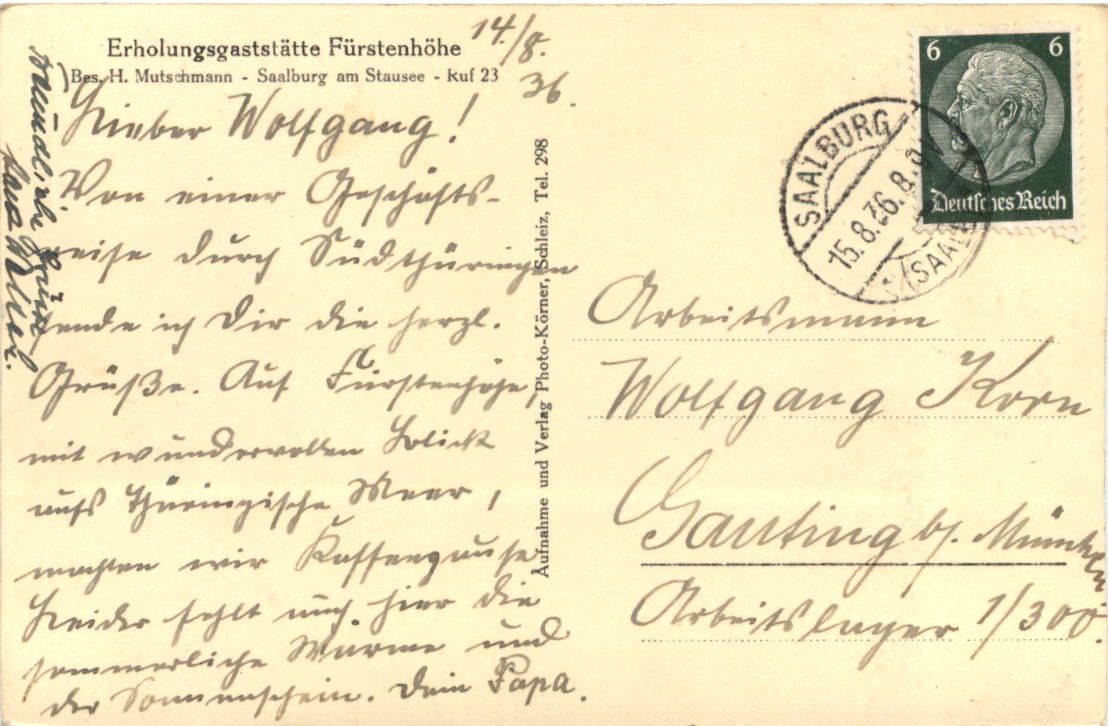 Erholungsgaststätte Fürstenhöhe
Bes. H. Mutschmann - Saalburg am Stausee - Ruf 23
14./8.
36.
Lieber Wolfgang!
Von einer Geschäfts-
reise durch Südthüringen
sende ich Dir die herzl.
Grüße. Auf Fürstenhöhe,
mit wundervollen Blick
aufs Thüringische Meer,
machten wir Kaffeepause
Leider fehlt auch hier die
sommerliche Wärme und
der Sonnenschein. Dein Papa.
Freundliche Grüße
Aufnahme und Verlag Photo-Körner, Schleiz, Tel. 298
6 6
Deutsches Reich
SAALBURG
15.8.36.8.
(SAALE)
Arbeitsmann
Wolfgang Korn
Gauting b/ München
Arbeitslager 1/300.